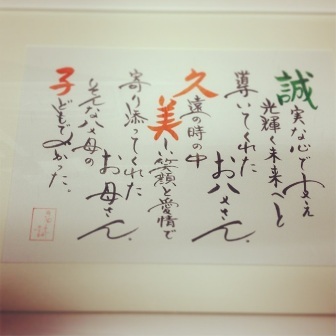 誠実な心で支え
光輝く未来へと
導いてくれた
お父さん。
久遠の時の中
美しい笑顔と愛情で
寄り添ってくれた
お母さん。
そんな父母の
子どもでよかった。